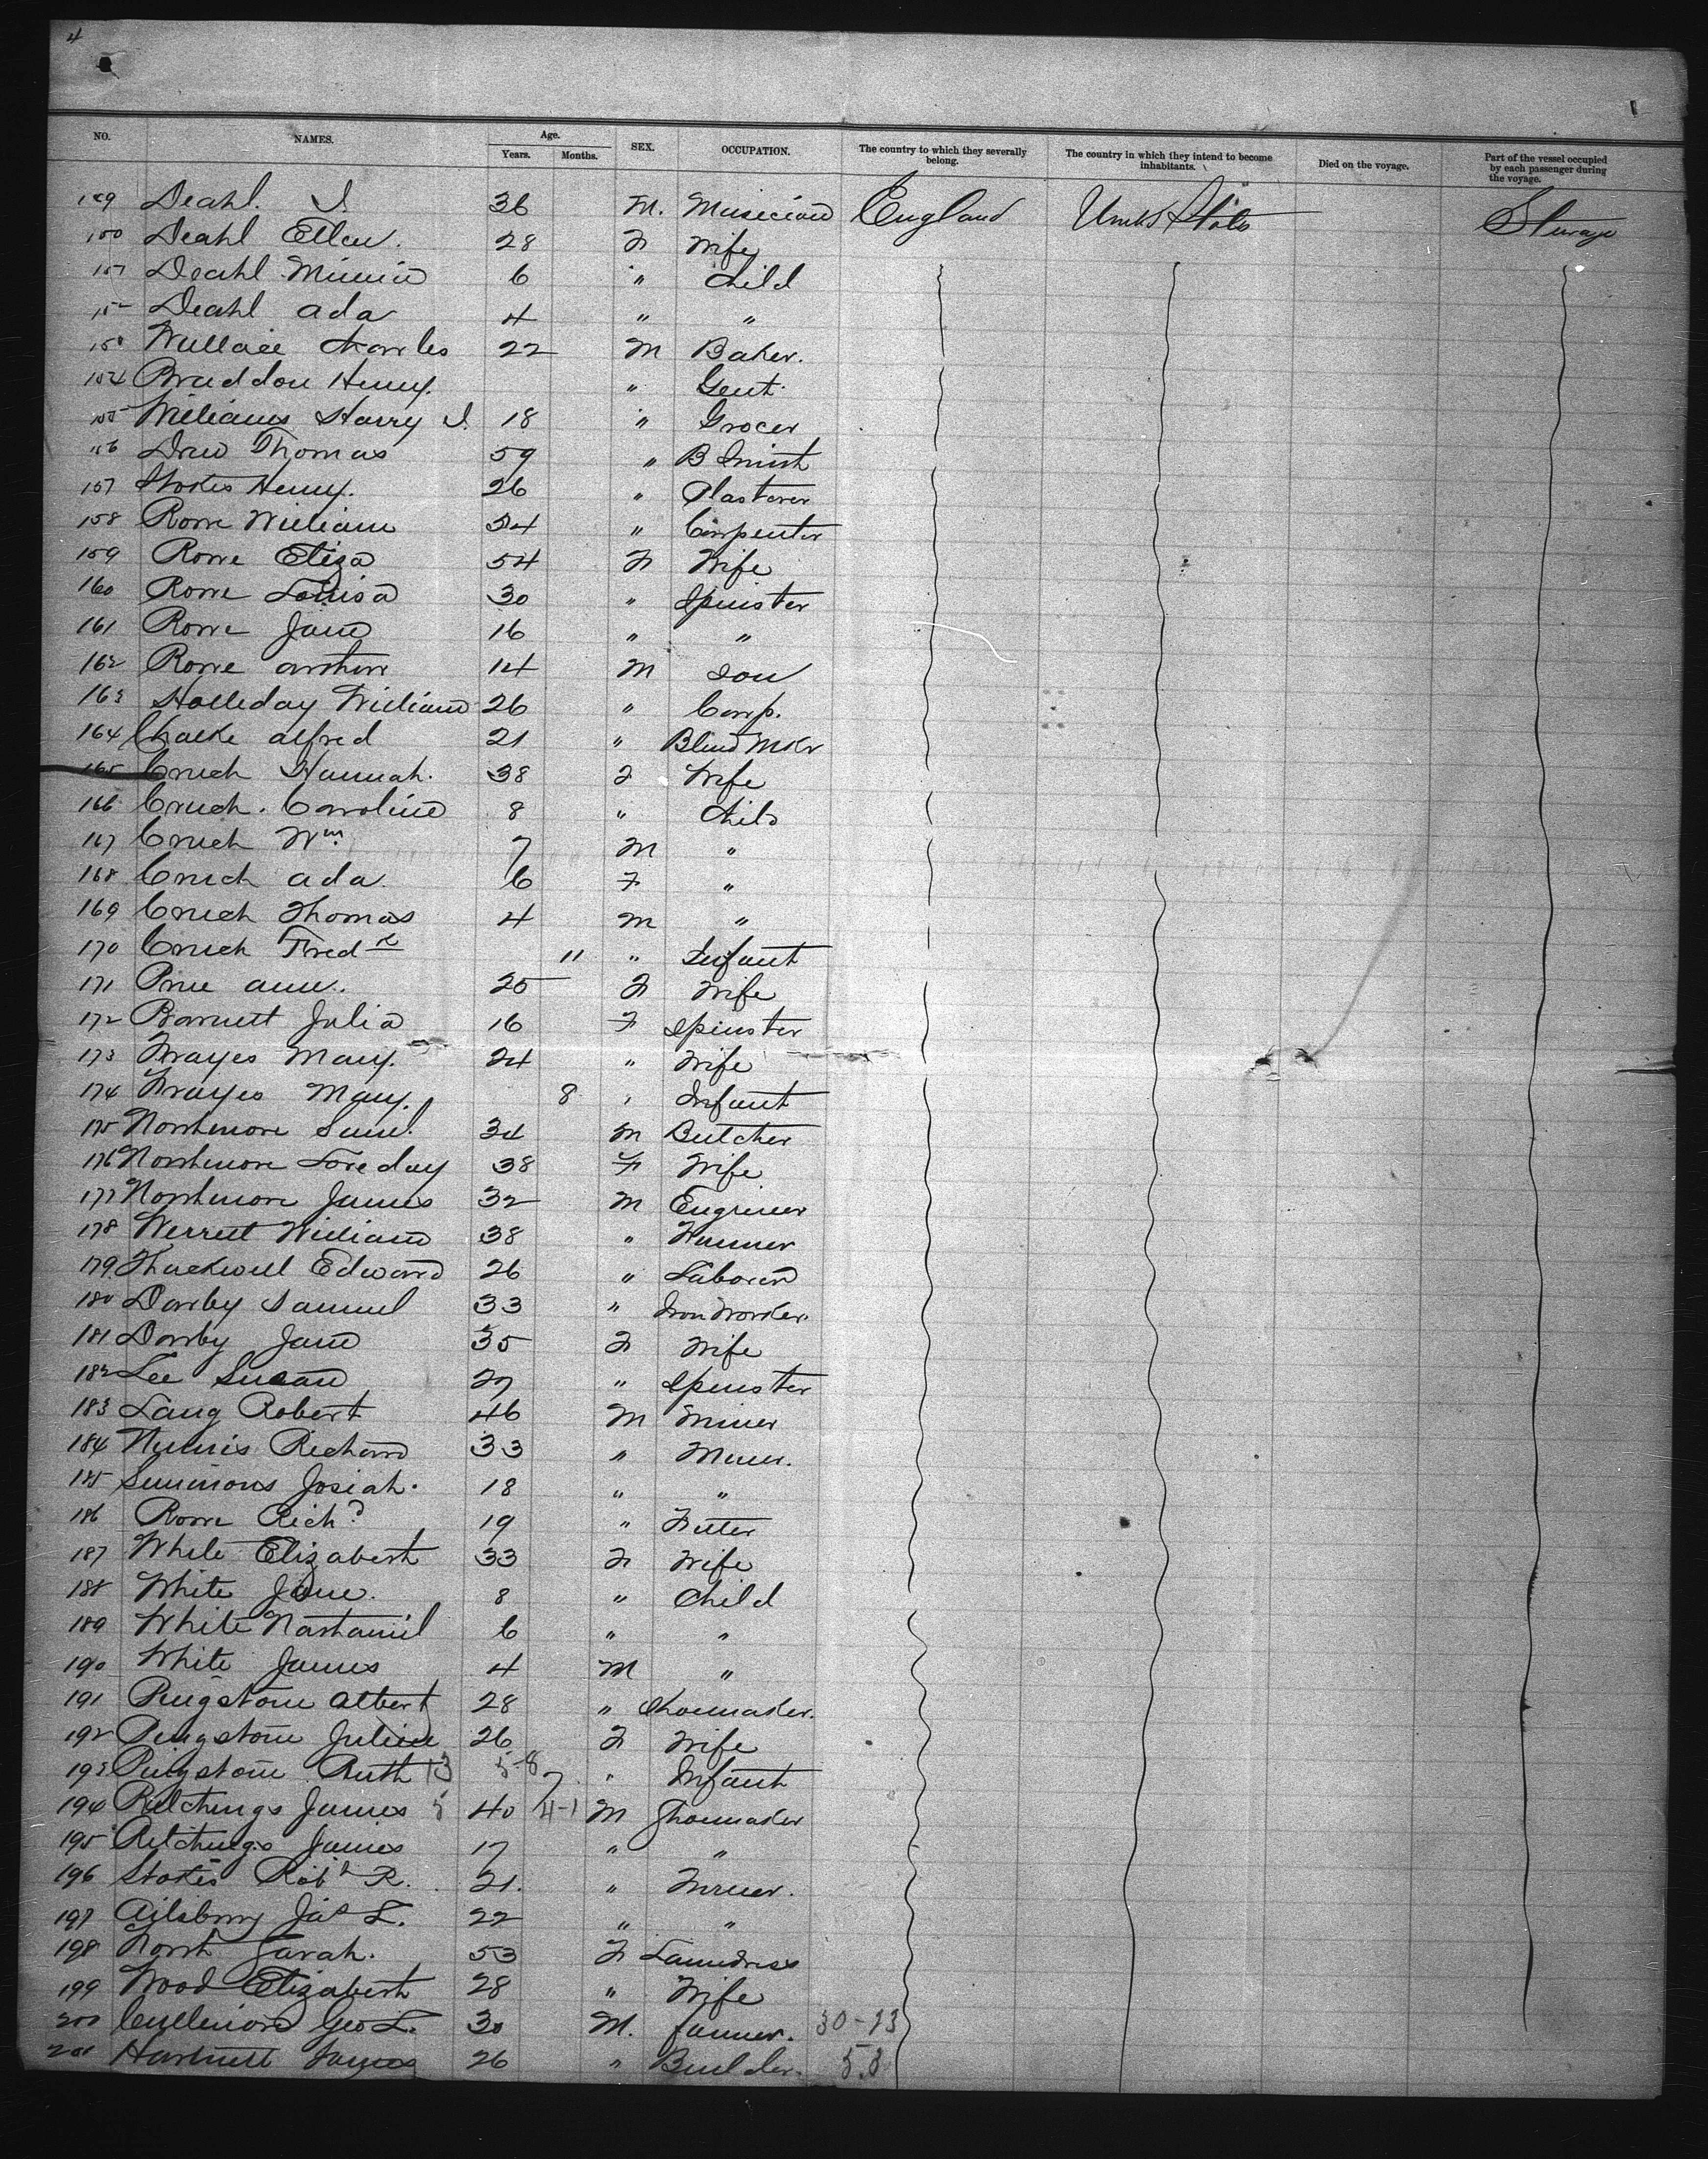 4
NO. NAMES. Age. Years. Months. SEX. OCCUPATION. The country to which they severally belong. The country in which they intend to become inhabitants. Died on the voyage. Part of the vessel occupied by each passenger during the voyage.
149 Deahl. J. 36 M. Musician England United States Steerage
150 Deahl Ellen. 28 F Wife
151 Deahl Minnie 6 " Child
152 Deahl Ada 4 " "
153 Wallace Charles 22 M Baker.
154 Braddon Henry. " Gent
155 Williams Harry J. 18 " Grocer
156 Drew Thomas 59 " B Smith
157 Stokes Henry. 26 " Plasterer
158 Rowe William 54 " Carpenter
159 Rowe Eliza 54 F Wife
160 Rowe Louisa 30 " Spinster
161 Rowe Jane 16 " "
162 Rowe Arthur 14 M Son
163 Holleday William 26 " Carp.
164 Chalke Alfred 21 " Blind Mkr
165 Cruch Hannah. 38 F Wife
166 Cruch. Caroline 8 " Child
167 Cruch Wm 7 M "
168 Cruch Ada. 6 F "
169 Cruch Thomas 4 M "
170 Cruch Fredk 11 " Infant
171 Ann. 25 F Wife
172 Barnett Julia 16 F Spinster
173 Mary. 24 " Wife
174 Mary. 8 " Infant
175 Northmore Saml. 34 M Butcher
176 Northmore Loveday 38 F Wife
177 Northmore James 32 M Engineer
178 Werrett William 38 "
179 Thackwell Edward 26 " Laborer
180 Darby Samuel 33 " Iron Worker.
181 Darby Jane 35 F Wife
182 Lee Susan 27 " Spinster
183 Lang Robert 46 M Miner
184 Richard 33 " Miner.
185 Simmons Josiah. 18 " "
186 Rowe Richd 19 " Fitter
187 White Elizabeth 33 F Wife
188 White Jane. 8 " Child
189 White Nathaniel 6 " "
190 White James 4 M "
191 Pingstone Albert 28 " Shoemaker.
192 Pingstone Julia 26 F Wife
193 Pingstone Ruth 13 5-8 7 " Infant
194 Ritchings James 5 40 4-1 M Shoemaker
195 Ritchings James 17 " "
196 Stokes Robt R. 21. "
197 Ailsbury Jas L. 22 " "
198 North Sarah. 53 F Laundress
199 Wood Elizabeth 28 " Wife
200 Geo L. 30 M. Farmer. 30-23
201 Hartnell James 26 " Builder. 58